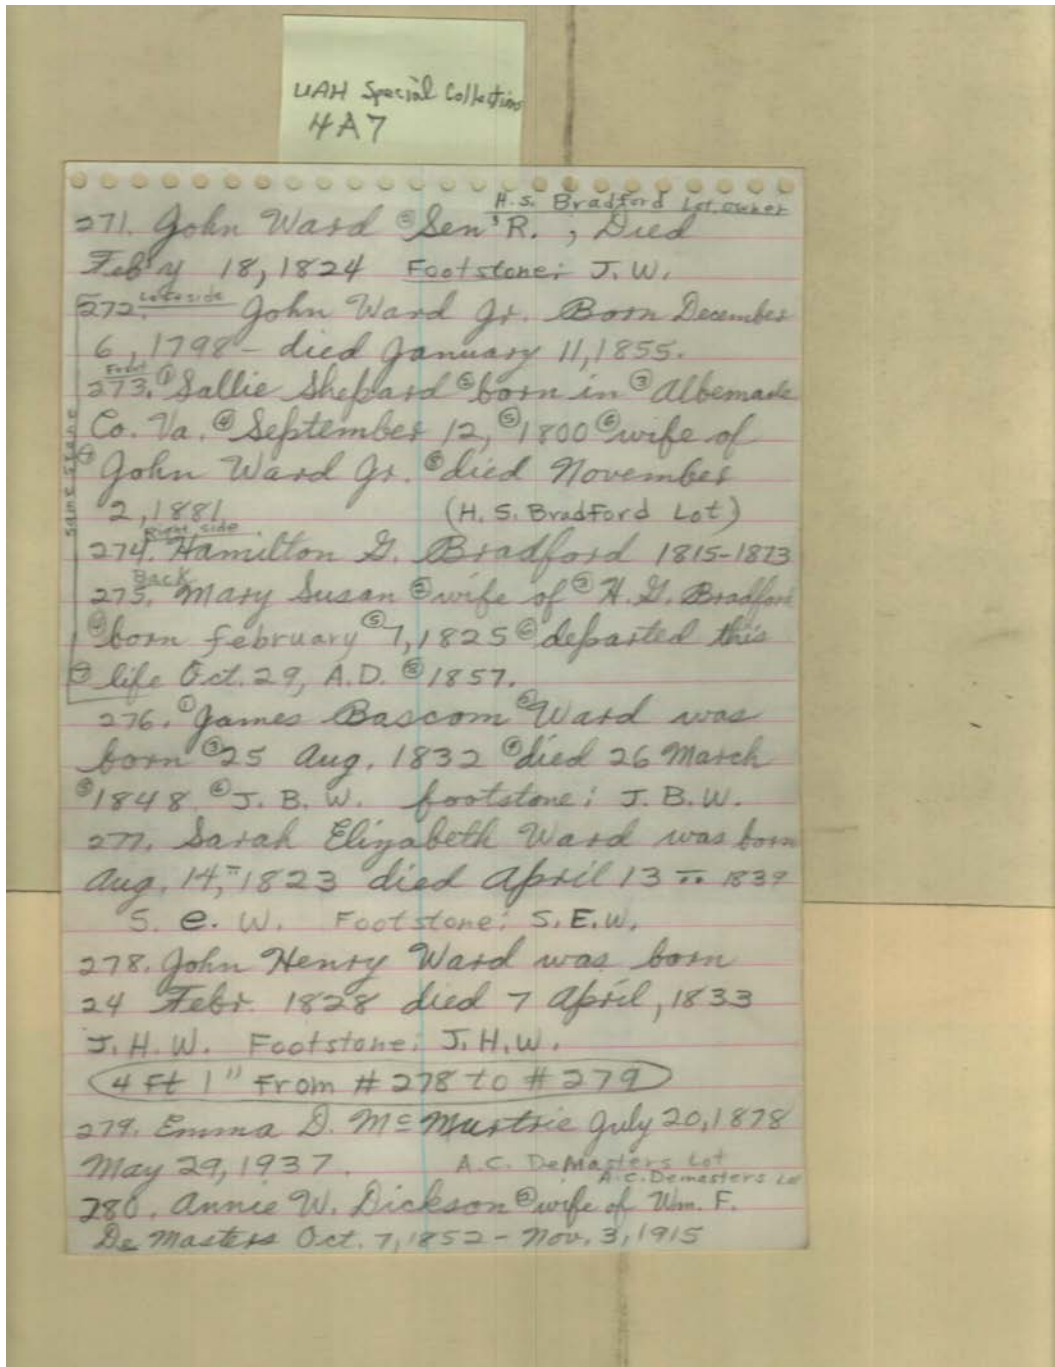 UAH Special Collections
4A7
H.S. Bradford Lot owner
271. John Ward ②Sen'R., Died
Feb'y 18, 1824 Footstone: J.W.
272. Left side John Ward Jr. Born December
6, 1798 - died January 11, 1855.
Front
273. ①Sallie Shepard ②born in ③Albemarle
Co. Va. ④September 12, ⑤1800 ⑥wife of
⑦John Ward Jr. ⑧died November
2, 1881. (H.S. Bradford Lot)
Right side
274. Hamilton G. Bradford 1815-1873
Back
275. Mary Susan ②wife of ③H.G. Bradford
④born February ⑤7, 1825 ⑥departed this
⑦life Oct. 29, A.D. ⑧1857.
same stone
276. ①James Bascom ②Ward was
born ③25 Aug. 1832 ④died 26 March
⑤1848. ⑥J. B. W. footstone: J.B.W.
277. Sarah Elizabeth Ward was born
Aug. 14, 1823 died April 13 1839
S. e. W. Footstone: S.E.W.
278. John Henry Ward was born
24 Febr. 1828 died 7 April, 1833
J. H. W. Footstone: J.H.W.
4 Ft 1" From #278 to #279
279. Emma D. McMurtrie July 20, 1878
May 29, 1937. A.C. DeMasters Lot
A.C. Demasters Lot
280. Annie W. Dickson ②wife of Wm. F.
De Masters Oct. 7, 1852 - Nov. 3, 1915